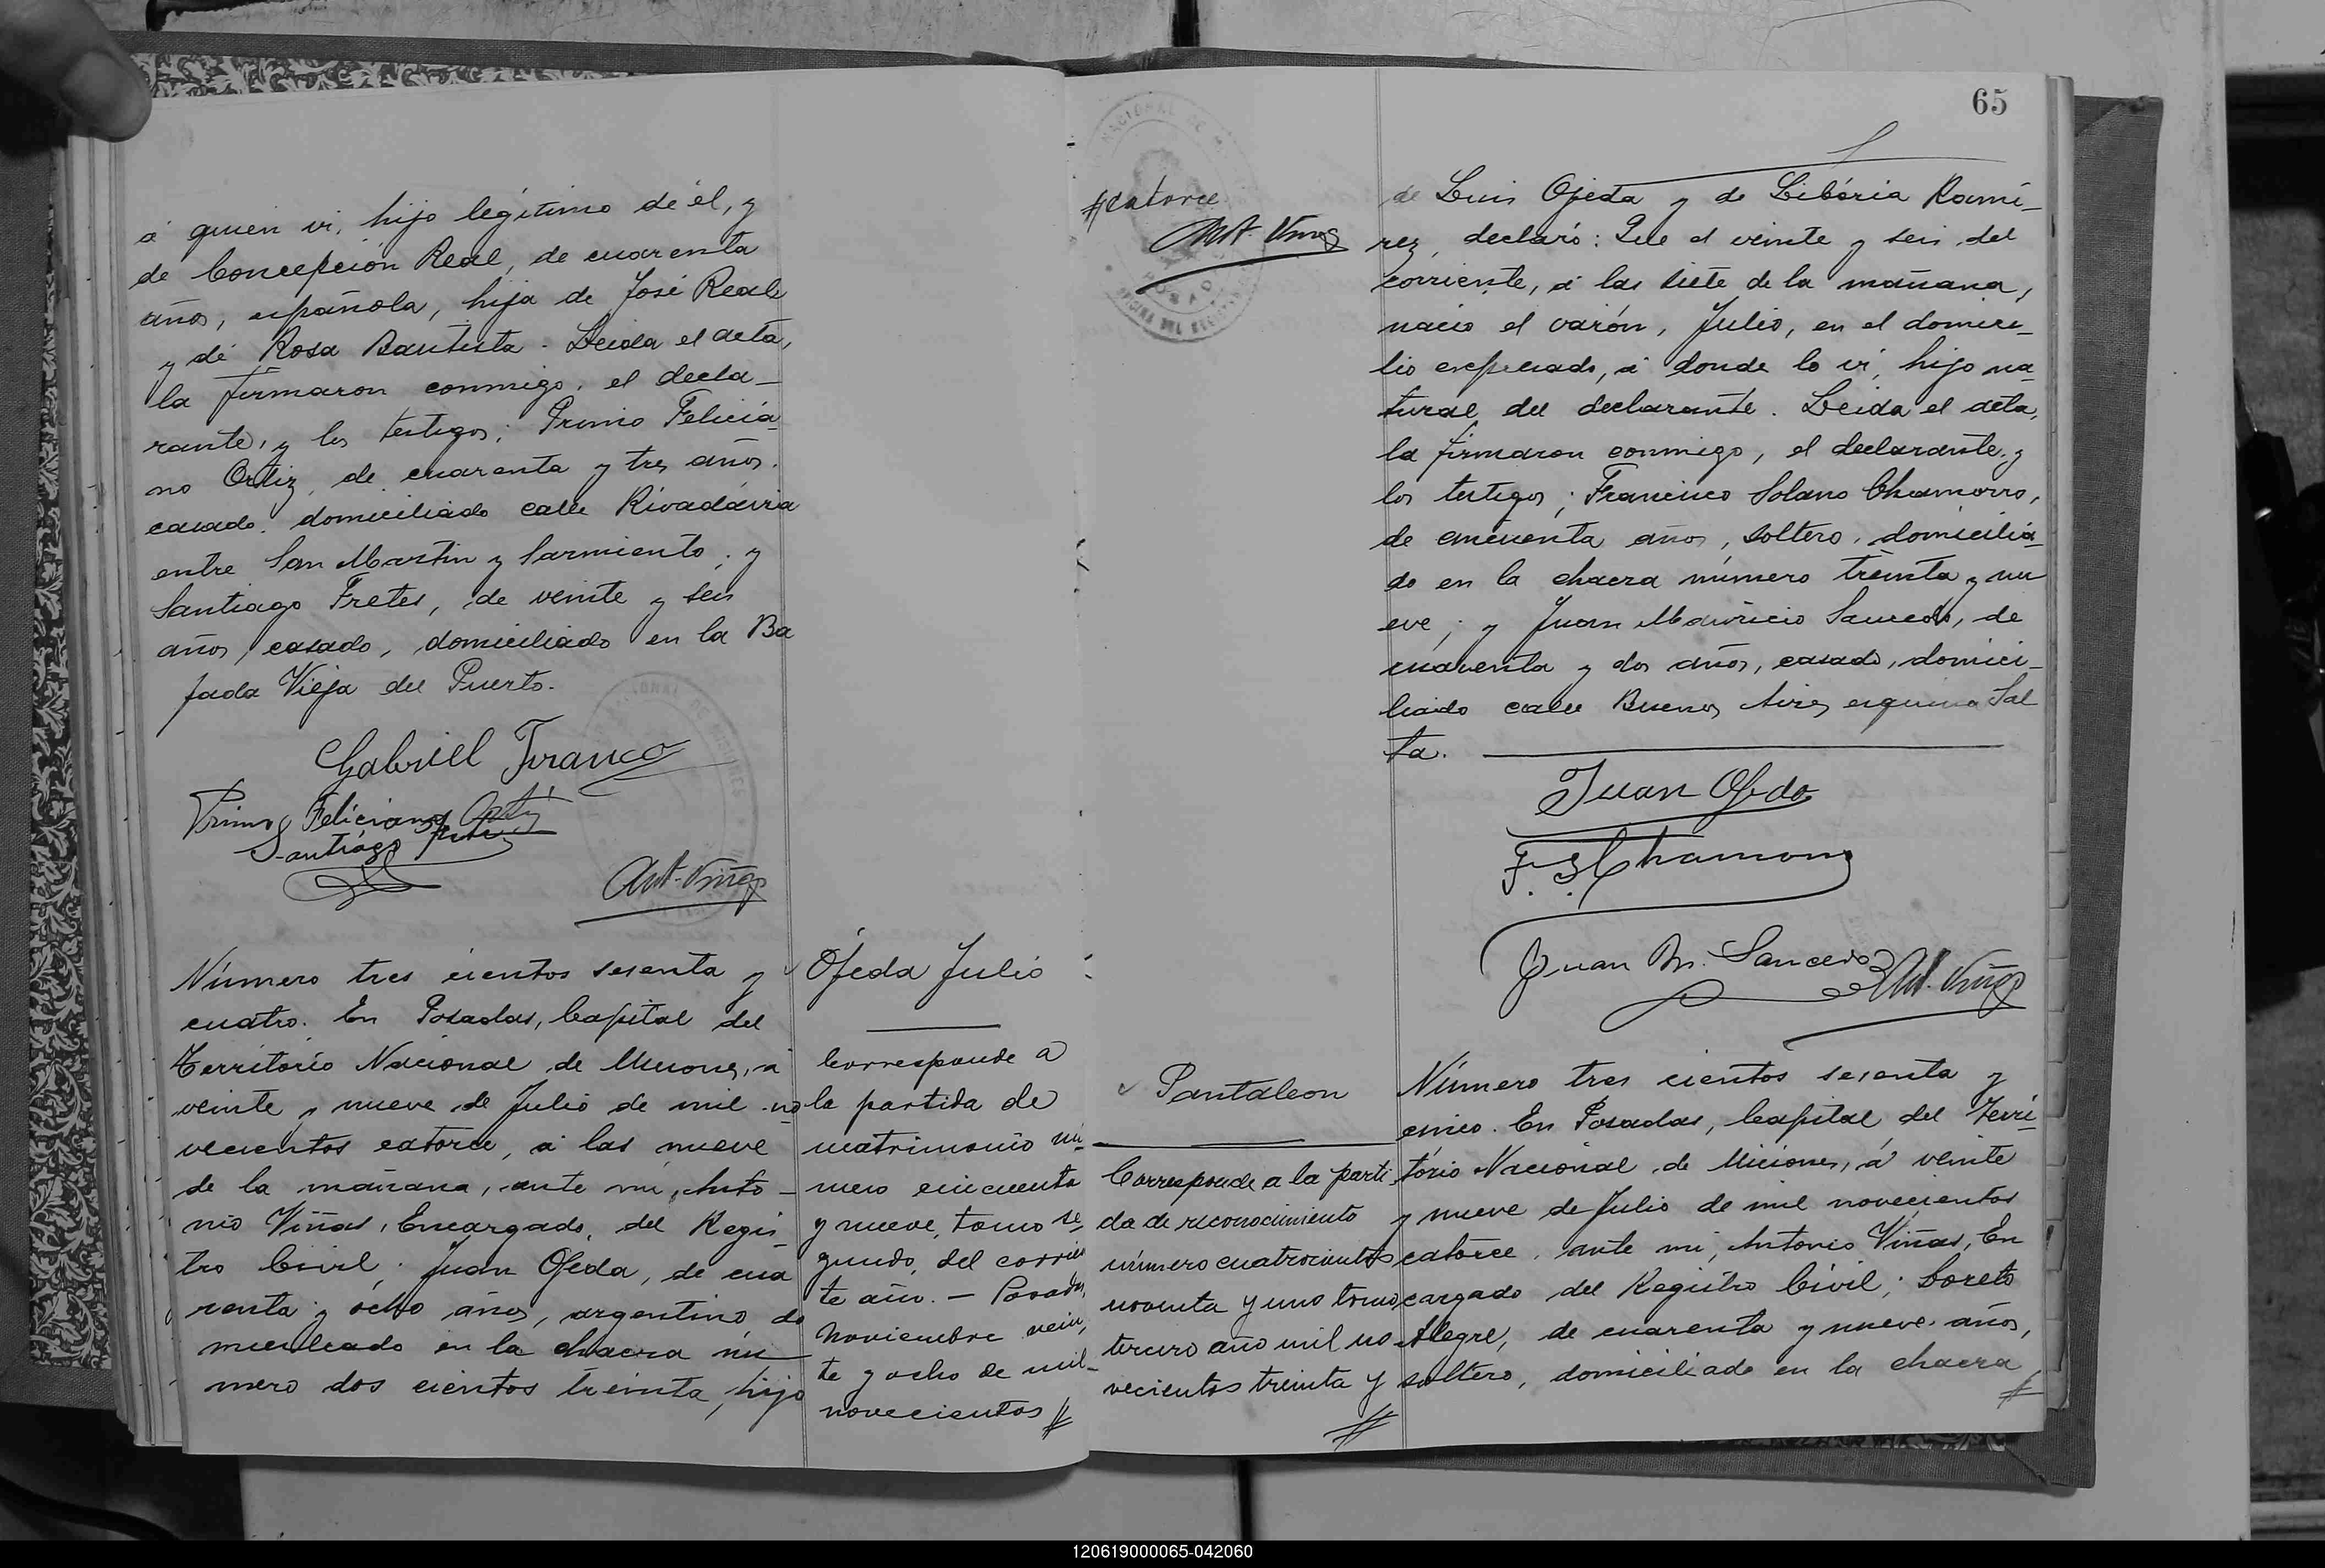 á quien vi, hijo legítimo de él, y
de Concepción Real, de cuarenta
años, española, hija de José Real
y de Rosa Bautista. Leida el acta,
la firmaron conmigo, el decla-
rante, y los testigos; Primo Felicia-
no Ortiz, de cuarenta y tres años,
casado, domiciliado calle Rivadavia
entre San Martin y Sarmiento; y
Santiago Fretes, de veinte y seis
años, casado, domiciliado en la Ba
jada Vieja del Puerto.
Gabriel Franco
Primo Feliciano Ortiz
Santiago Fretes
Ant. Viñas
Número tres cientos sesenta y
cuatro. En Posadas, Capital del
Territorio Nacional de Misiones, á
veinte y nueve de Julio de mil no-
vecientos catorce, á las nueve
de la mañana, ante mi, Anto-
nio Viñas, Encargado, del Regis-
tro Civil; Juan Ojeda, de cua
renta y ocho años, argentino, do
miciliado en la chacra nú-
mero dos cientos treinta, hijo
Ojeda Julio
Corresponde a
la partida de
matrimonio nú-
mero cincuenta
y nueve, tomo se-
gundo, del corrien
te año. — Posadas,
Noviembre vein-
te y ocho de mil-
novecientos #
65
# catorce
Ant. Viñas
de Luis Ojeda y de Liboria Ramí-
rez, declaró: Que el veinte y seis del
corriente, á las siete de la mañana,
nació el varón, Julio, en el domici-
lio expresado, á donde lo vi, hijo na-
tural del declarante. Leida el acta,
la firmaron conmigo, el declarante, y
los testigos; Francisco Solano Chamorro,
de cincuenta años, soltero, domicilia-
do en la chacra número treinta y nu
eve; y Juan Mauricio Saucedo, de
cuarenta y dos años, casado, domici-
liado calle Buenos Aires esquina Sal
ta.
Juan Ojeda
F. S. Chamorro
Juan M. Saucedo
Ant. Viñas
Pantaleon
Corresponde a la parti-
da de reconocimiento
número cuatrocientos
noventa y uno tomo
tercero año mil no
vecientos treinta y
#
Número tres cientos sesenta y
cinco. En Posadas, Capital del Terri-
tório Nacional de Misiones, á veinte
y nueve de Julio de mil novecientos
catorce, ante mi, Antonio Viñas, En
cargado del Registro Civil; Loreto
Alegre, de cuarenta y nueve años,
soltero, domiciliado en la chacra
#
120619000065-042060